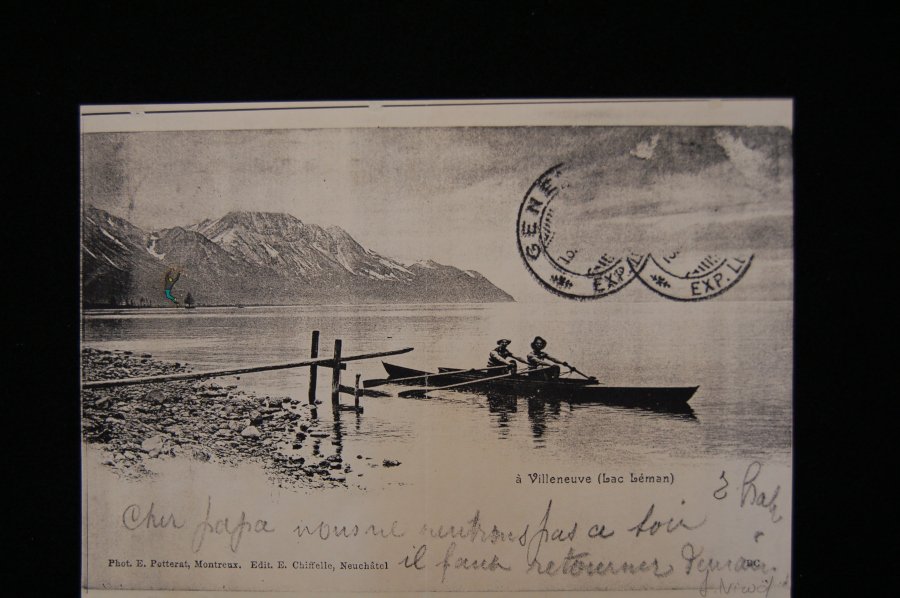 GENE
EXP. L
EXP. LE
à Villeneuve (Lac Léman)
Cher papa nous ne rentrons pas ce soir
il faut retourner demain
Phot. E. Potterat, Montreux. Edit. E. Chiffelle, Neuchâtel